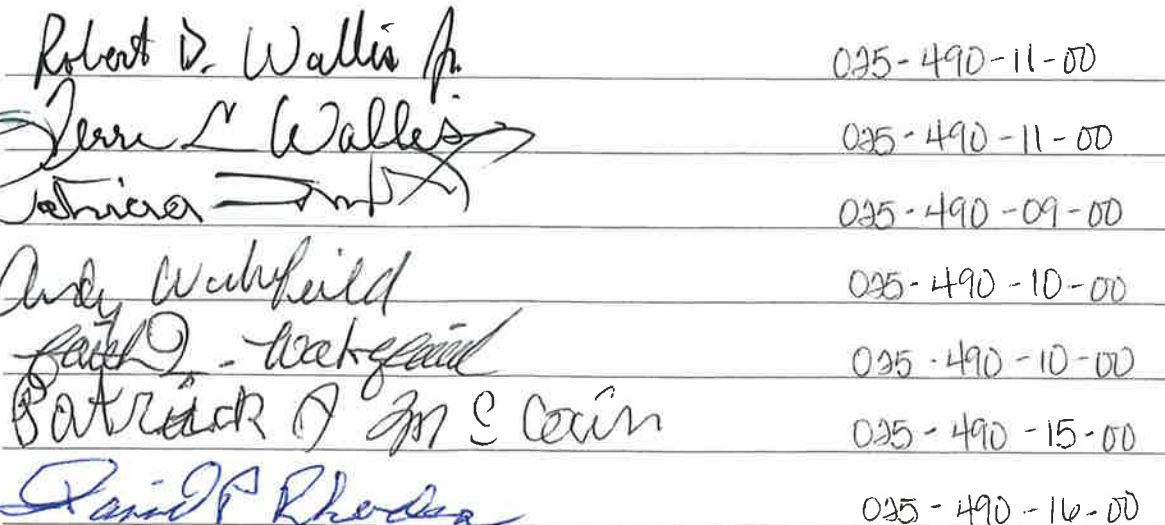 Robert D. Wallis Jr. 025-490-11-00
Terri L Wallis 025-490-11-00
Patricia 025-490-09-00
Andy Wakefield 025-490-10-00
Faith J. Wakefield 025-490-10-00
Patrick J McCain 025-490-15-00
David P Rhodes 025-490-16-00